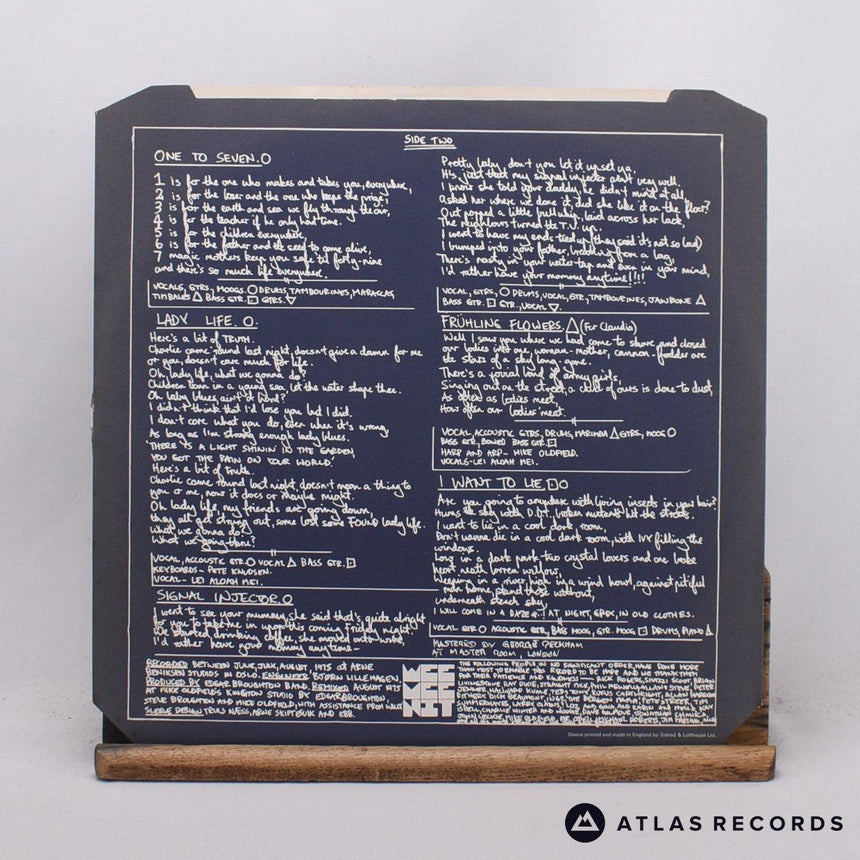 SIDE TWO
ONE TO SEVEN. O
1 is for the one who makes and takes you, everywhere,
2 is for the loser and the one who keeps the prize,
3 is for the earth and sea we fly through the air,
4 is for the teacher if he only had time.
5 is for the children everywhere
6 is for the father and the seed to come alive,
7 magic mothers keep you safe til forty-nine
and there's so much life everywhere.
VOCALS, GTRS, MOOGS O DRUMS, TAMBOURINES, MARACCAS
TIMBALES △ BASS GTR. □ GTRS. ▽
LADY LIFE. O.
Here's a bit of TRUTH.
Charlie came round last night, doesn't give a damn for me
or you, doesn't care much for life.
Oh, lady life, what we gonna do?
Children born in a young sea, let the water shape thee.
Oh lady blues, ain't it hard?
I didn't think that I'd lose you but I did.
I don't care what you do, even when it's wrong,
As long as I'm strong enough lady blues.
THERE IS A LIGHT SHININ' IN THE GARDEN,
YOU GOT THE RAIN ON YOUR WORLD.
Here's a bit of truth.
Charlie came round last night, doesn't mean a thing to
you or me, now it does or maybe might.
Oh lady life, my friends are going down,
they all get strung out, some lost some FOUND lady life.
What we gonna do?
What we gonna
VOCAL, ACCOUSTIC GTR. O VOCAL △ BASS GTR. □
KEYBOARDS - PETE KNUDSEN.
VOCAL - LEI ALOAH MEI.
SIGNAL INJECTOR. O
I went to see your mummy, she said that's quite alright
for you to take me in upon this coming Friday night.
We started drinking coffee, she moved onto wine,
I'd rather have your mommy anytime -
Pretty baby, don't you let it upset ya,
It's just that my signal injector ain't very well,
I know she told your daddy, he didn't mind at all,
Asked her where we done it, did she like it on the floor?
Out popped a little bullwhip, laid across her back,
The neighbours turned the T.V. up.
I went to have my ends tied up (they said it's not so bad)
I bumped into your father, breathing from a bag.
There's party in your water tap and even in your mind,
I'd rather have your mommy anytime!!!!
VOCAL, GTRS, O DRUMS, VOCAL, GTR, TAMBOURINES, JAWBONE △
BASS GTR. □ GTR, VOCAL ▽.
FRÜHLING FLOWERS. △ (For Claudia)
Well I saw you where we had come to share and closed
our ladies into one, woman-mother, cannon-fodder are
the stars of a sky long-gone.
There's a jewelled land of army girls,
Singing out on the street, a child of ours is done to dust,
As often as ladies meet,
How often our ladies meet.
VOCAL, ACCOUSTIC GTRS, DRUMS, MARIMBA △ GTRS, MOOG O
BASS GTR, BOWED BASS GTR. □
HARP AND ARP - MIKE OLDFIELD.
VOCALS - LEI ALOAH MEI.
I WANT TO LIE, □ O
Are you going to anywhere with living insects in your hair?
Hums the sky with D.D.T., broken mutants hit the streets.
I want to lie in a cool dark room,
Don't wanna die in a cool dark room, with IVY filling the
windows.
Lost in a dark park two crystal lovers and one
Meet neath barren willows,
Weeping in a river, high in a wind howl, against pitiful
rain home, stand those without,
underneath starch sky,
I WILL COME IN A DAZE AT NIGHT, GREY, IN OLD CLOTHES.
VOCAL GTR O ACCOUSTIC GTR, BASS MOOG, GTR, MOOG □ DRUMS, PIANO △
MASTERED BY GEORGE PECKHAM
AT MASTER ROOM, LONDON
RECORDED BETWEEN JUNE, JULY, AUGUST, 1975 AT ARNE
BENIKSEN STUDIOS IN OSLO. ENGINEER BJØRN LILLEHAGEN,
PRODUCED BY EDGAR BROUGHTON BAND, REMIXED AUGUST 1975
AT MIKE OLDFIELD'S KINGTON STUDIO BY EDGAR BROUGHTON,
STEVE BROUGHTON AND MIKE OLDFIELD, WITH ASSISTANCE FROM
SLEEVE DESIGN TRULS NÆSS, ARNE SKIPTESVIK AND EBB.
THE FOLLOWING PEOPLE IN NO SIGNIFICANT ORDER, HAVE DONE MORE
THAN MOST TO ENABLE THIS RECORD TO BE MADE AND WE THANK THEM
FOR THEIR PATIENCE AND KINDNESS -
Sleeve printed and made in England by Garrod & Lofthouse Ltd.
ATLAS RECORDS